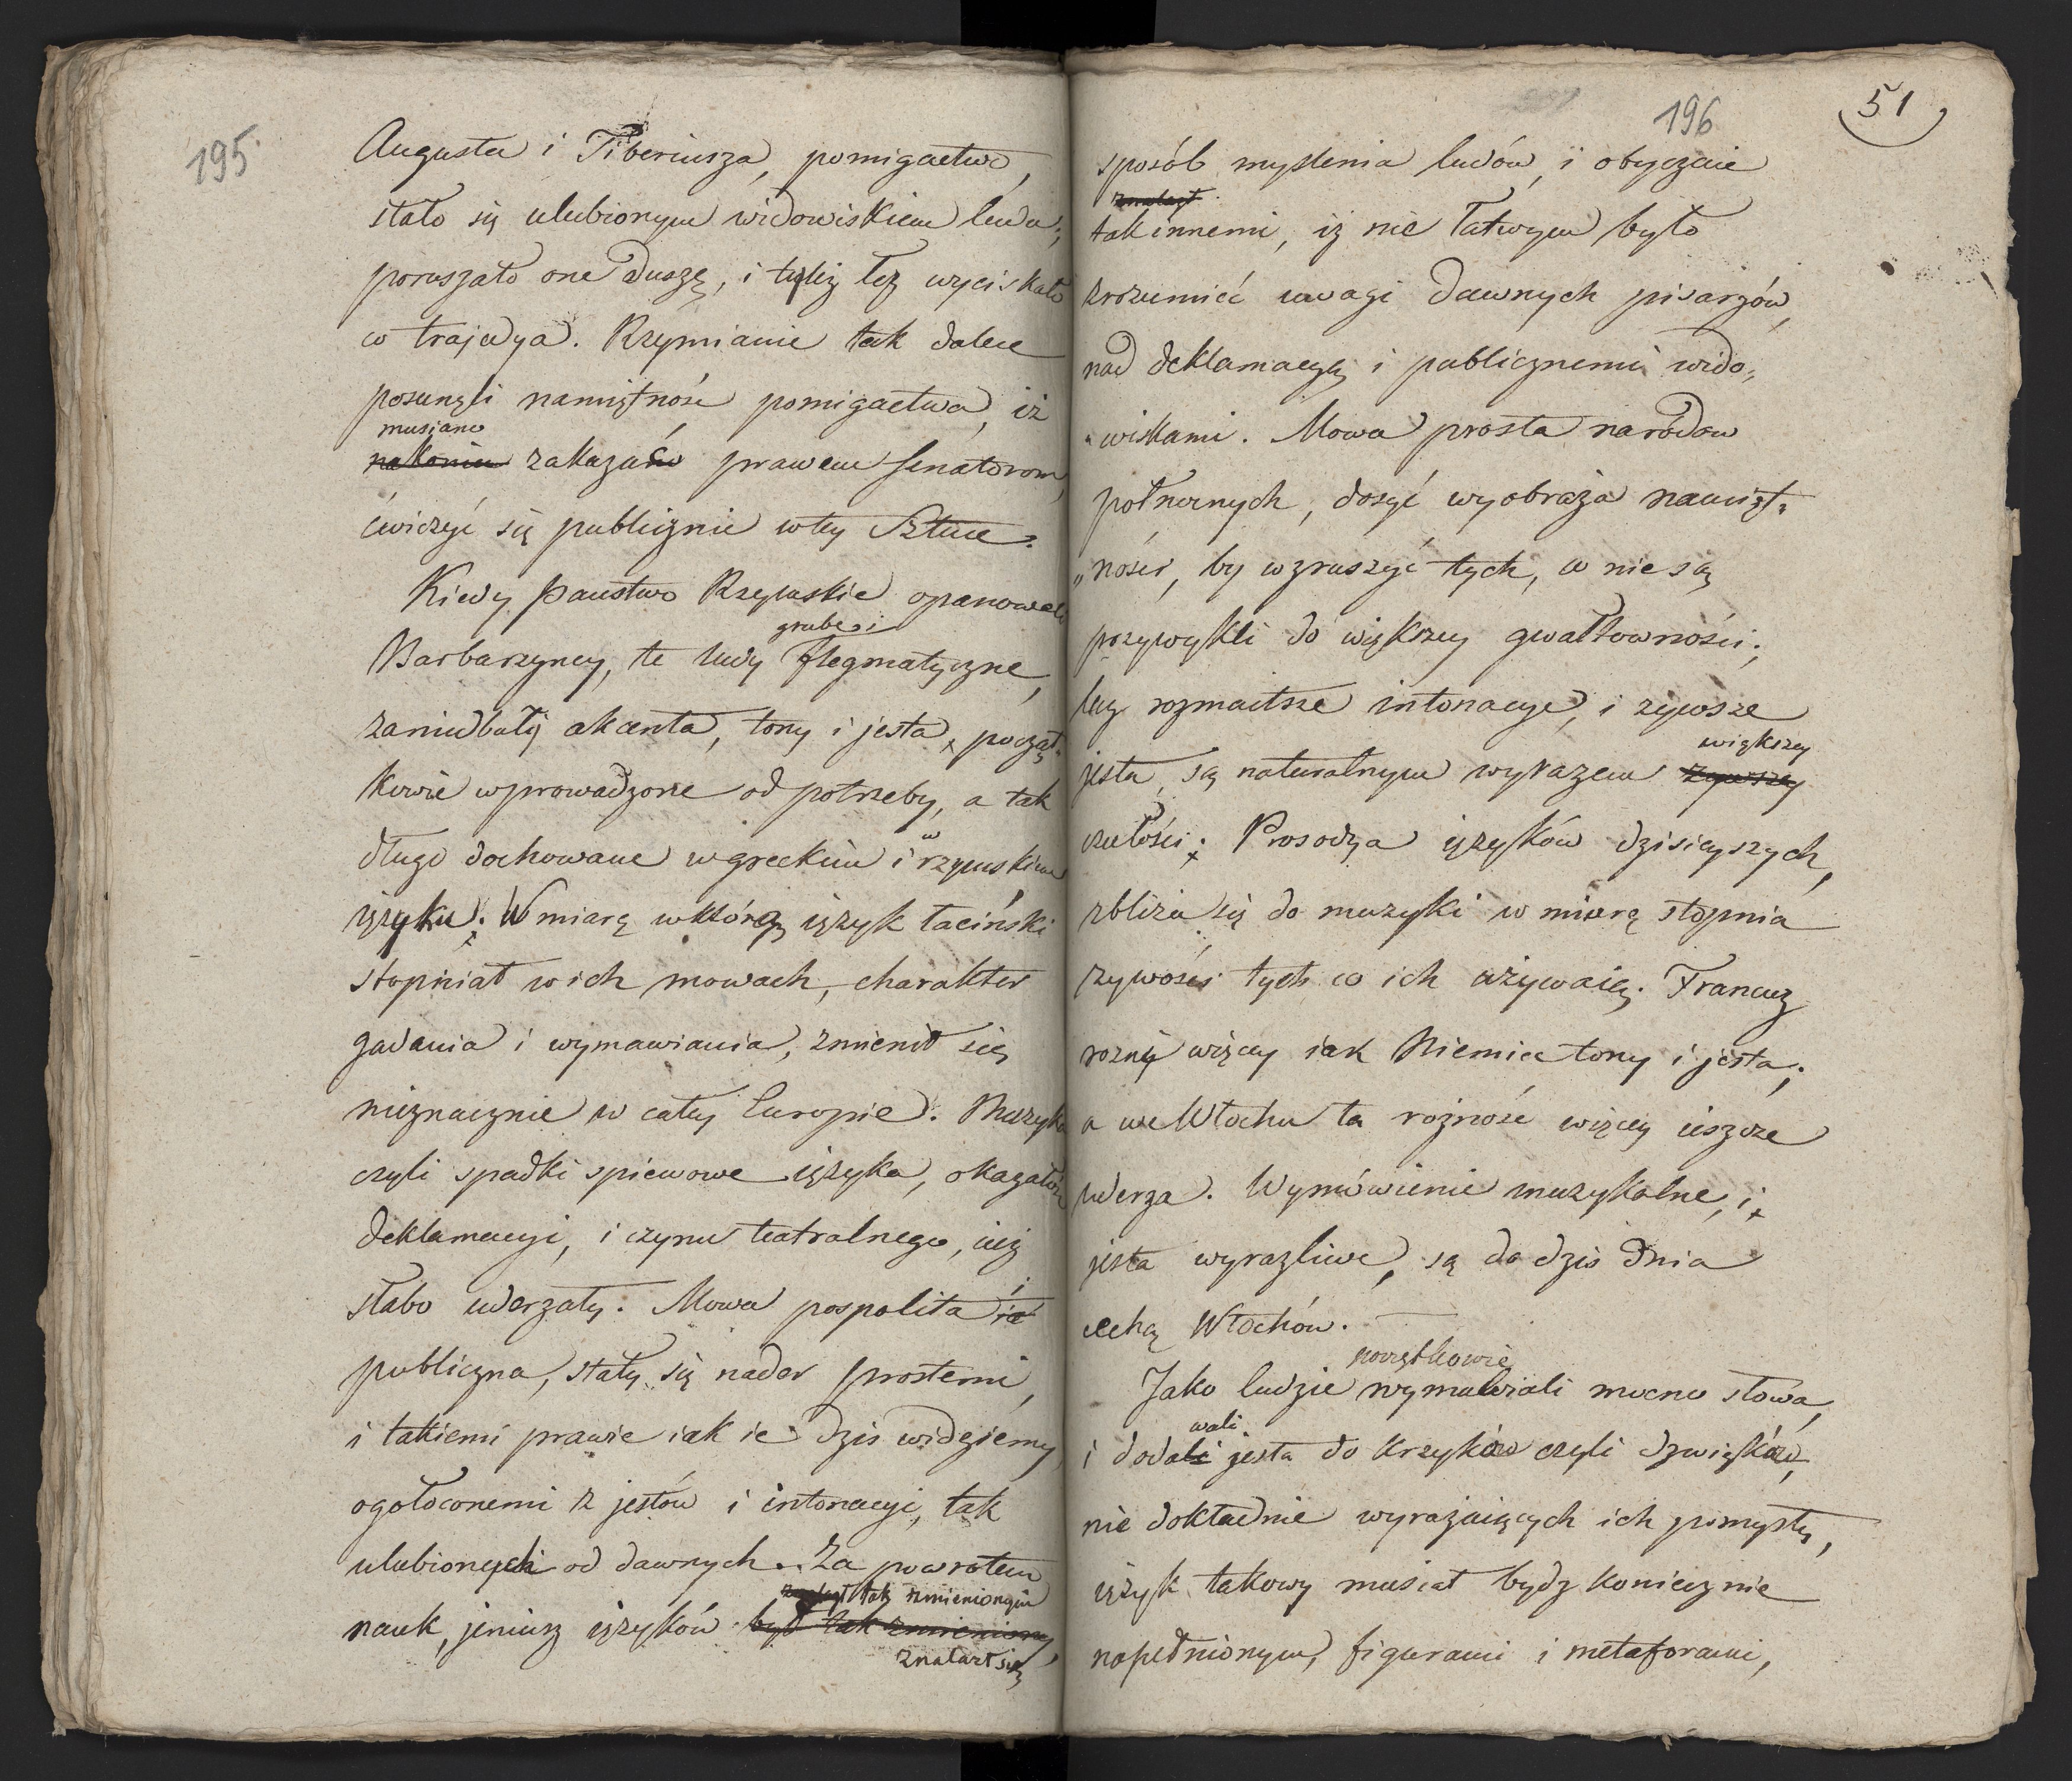 195.
Augusta i Tiberiusza, pomigactwo,
stało się ulubionym widowiskiem ludu;
poruszało one duszę, i tyleż łez wyciskało
co trajedya. Rzymianie tak dalece
posunęli namiętnośc pomigactwa, iż
musiano
nakoniec zakazać prawem Senatorom,
ćwiczyć się publicznie w tey Sztuce.
Kiedy państwo Rzymskie opanowali
grube i
Barbarzyncy, te ludy flegmatyczne,
zaniedbały akcenta, tony i jesta, począt-
kowie wprowadzone od potrzeby, a tak
w
długo dochowane w greckim i rzymskim
ięzyku. W miarę w którą ięzyk łaciński
stopniał w ich mowach, charakter
gadania i wymawiania, zmienił się
nieznacznie w całey Europie. Muzyka
czyli spadki spiewowe ięzyka, okazałość
deklamacyi, i czynu teatralnego, iuż
słabo uderzały. Mowa pospolita i
publiczna, stały się nader prostemi,
i takiemi prawie iak ie dziś widziemy,
ogołoconemi z jestów i intonacyi, tak
ulubionych od dawnych. Za powrotem
tak zmienionym
nauk, jeniusz ięzyków był tak zmieniony,
znalazł się
196
51
sposób myslenia ludów, i obyczaie
znalazł
tak innemi, iż nie łatwym było
zrozumieć uwagi dawnych pisarzów,
nad deklamacyą i publicznemi wido„
„wiskami. Mowa prosta narodow
północnych, dosyć wyobraża namięt„
„nośći, by wzruszyć tych, co nie są
przywykli do większey gwałtownośći;
lecz rozmaitsze intonacye, i żywsze
większey
jesta, są naturalnym wyrazem żywszey
czułośći. Prosodya ięzyków dzisieyszych,
zbliża się do muzyki w miarę stopnia
żywośći tych co ich używaią. Francuz
rożni więcey iak Niemiec tony i jesta;
a we Włochu ta rożnośc więcey ieszcze
uderza. Wymówienie muzykalne, i
jesta wyrazliwe, są do dziś dnia
cechą Włochów.
początkowie
Jako ludzie wymawiali mocno słowa,
wali
i dodali jesta do krzyków czyli dzwięków,
nie dokładnie wyrażaiących ich pomysły,
ięzyk takowy musiał bydz koniecznie
napełnionym, figurami i metaforami,